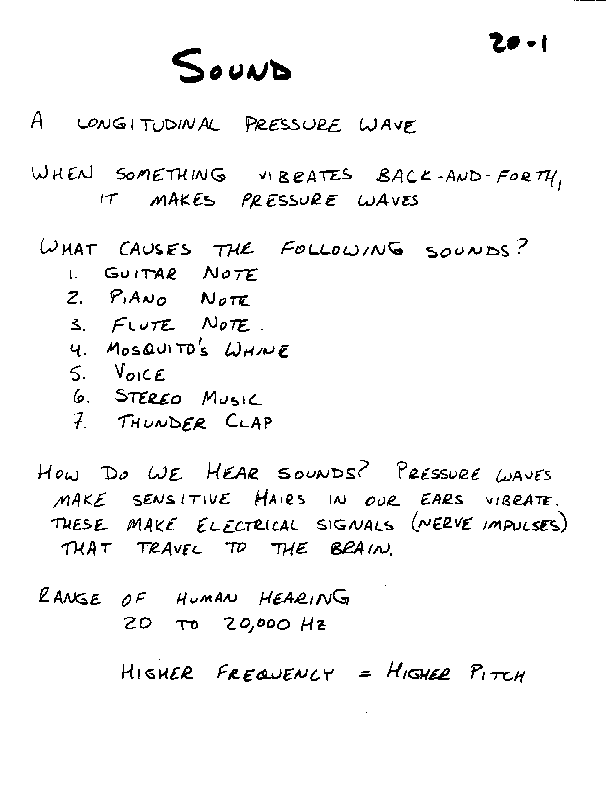 20-1
SOUND
A LONGITUDINAL PRESSURE WAVE
WHEN SOMETHING VIBRATES BACK-AND-FORTH,
IT MAKES PRESSURE WAVES
WHAT CAUSES THE FOLLOWING SOUNDS?
1. GUITAR NOTE
2. PIANO NOTE
3. FLUTE NOTE.
4. MOSQUITO'S WHINE
5. VOICE
6. STEREO MUSIC
7. THUNDER CLAP
HOW DO WE HEAR SOUNDS? PRESSURE WAVES
MAKE SENSITIVE HAIRS IN OUR EARS VIBRATE.
THESE MAKE ELECTRICAL SIGNALS (NERVE IMPULSES)
THAT TRAVEL TO THE BRAIN.
RANGE OF HUMAN HEARING
20 TO 20,000 HZ
HIGHER FREQUENCY = HIGHER PITCH